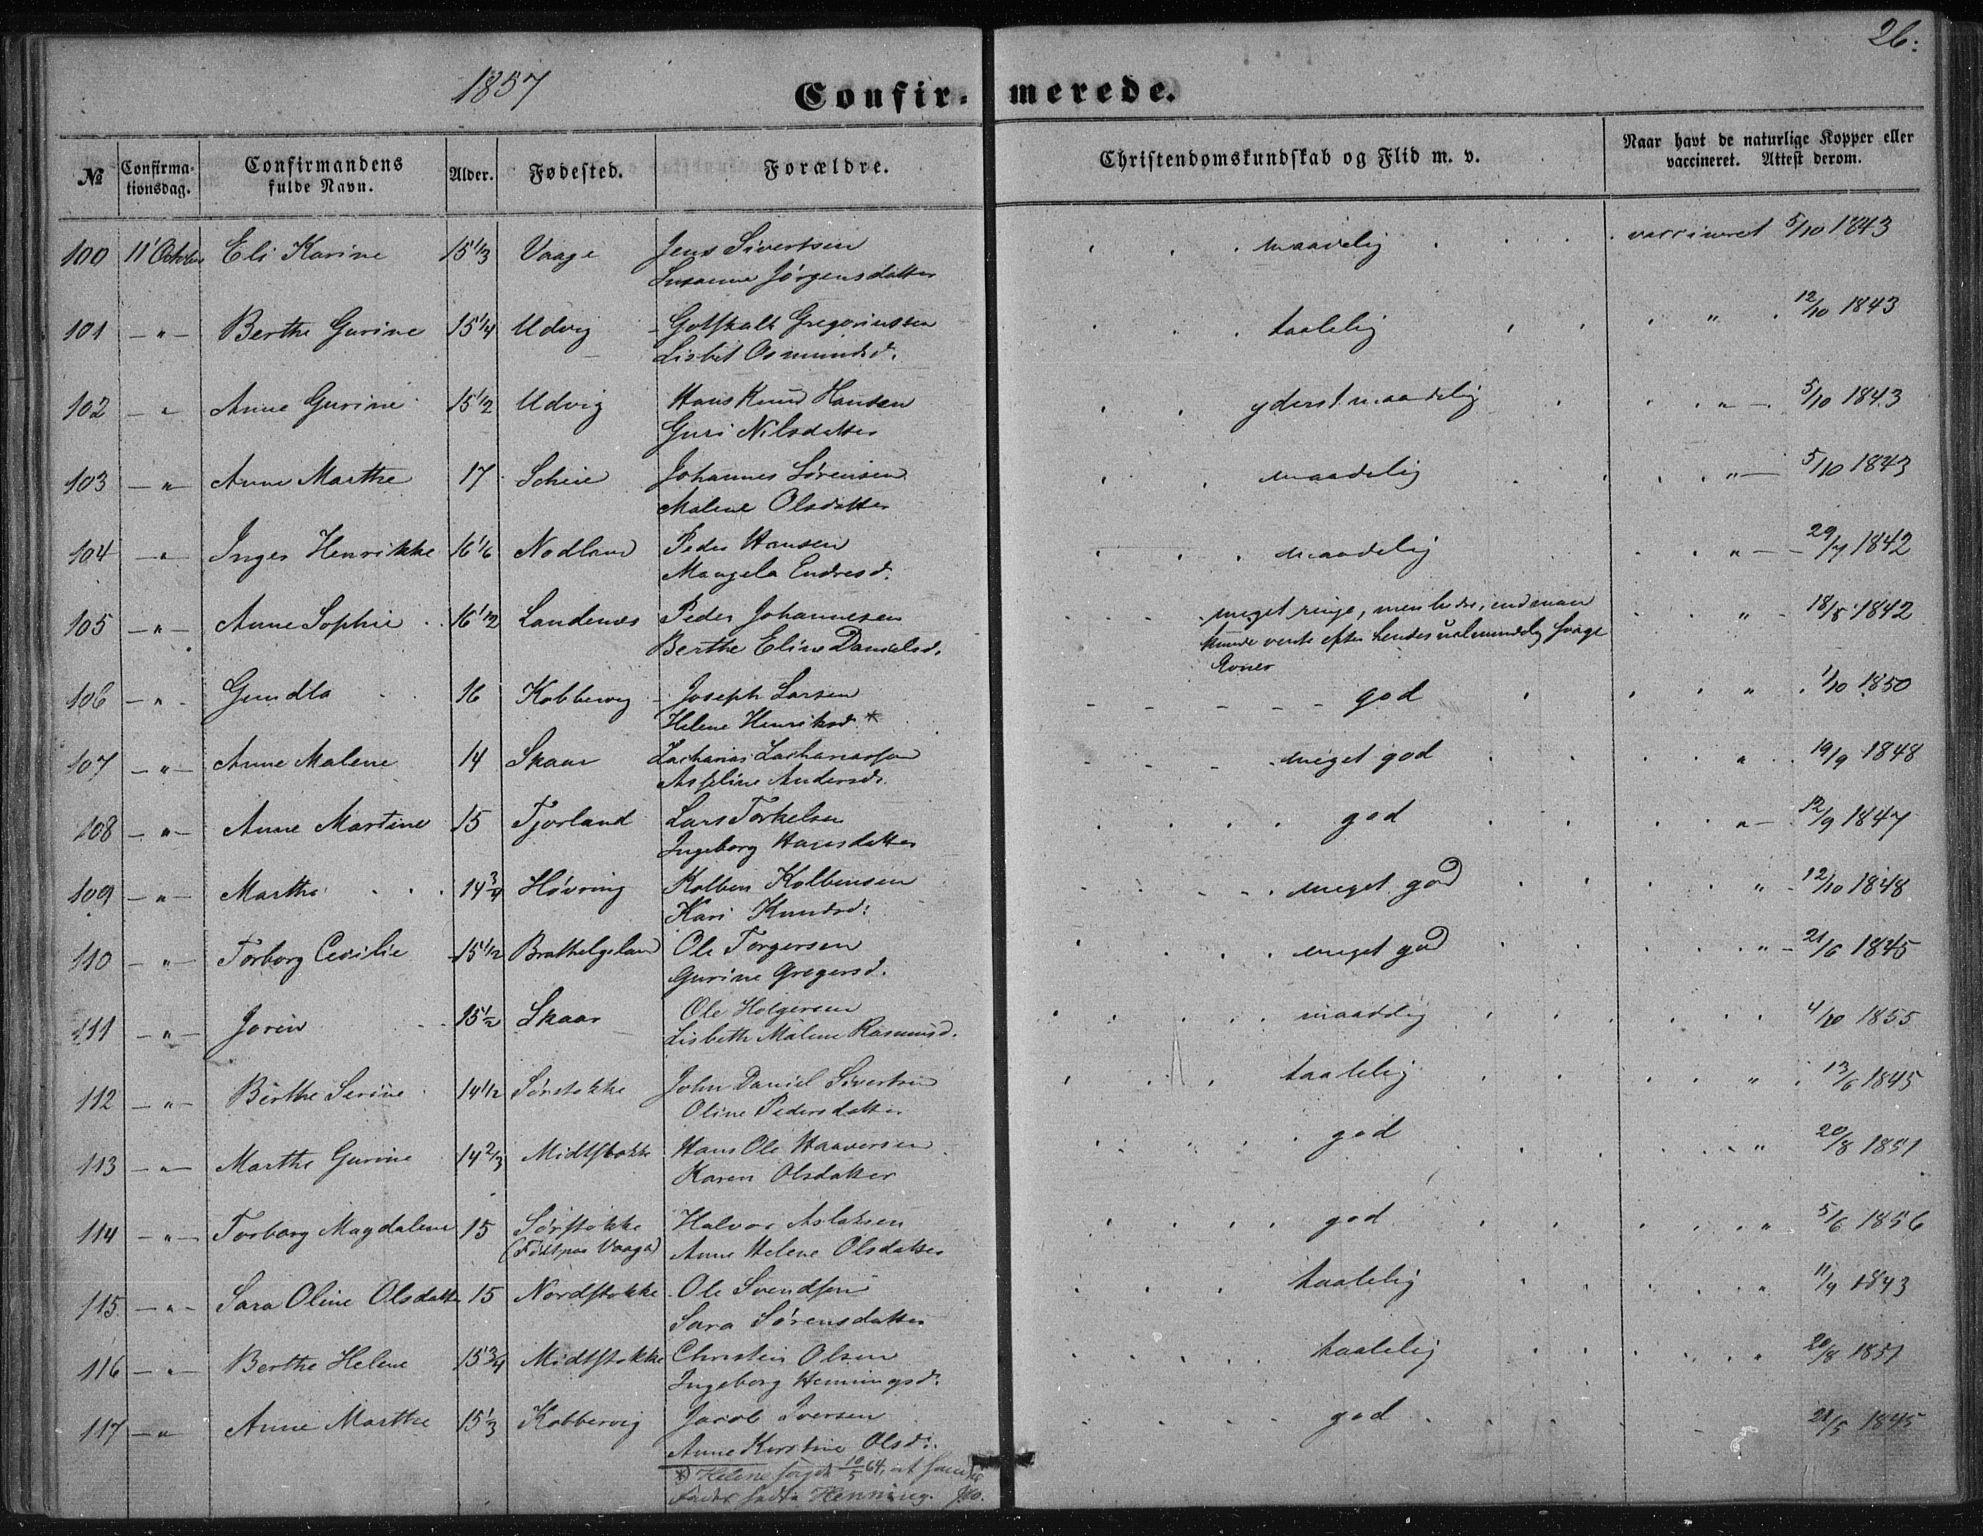 26.
1857
Confirmerede.
№ Confirmationsdag. Confirmandens fulde Navn. Alder. Fødested. Forældre. Christendomskundskab og Flid m. v. Naar havt de naturlige Kopper eller vaccineret. Attest derom.
100 11' October Eli Karine 15 1/3 Vaage Jens Sivertsen maadelig vaccineret 5/10 1843
Susanne Jørgensdatter
101 — " — Berthe Gurine 15 1/4 Udvig Gotskalk Gregoriussen taalelig " 12/10 1843
Lisbet Osmundsd.
102 — " Anne Gurine 15 1/2 Udvig Hans Knud Hansen yderst maadelig " — 5/10 1843
Guri Nilsdatter
103 — " — Anne Marthe 17 Scheie Johannes Sørensen maadelig " — 5/10 1843
Malene Olsdatter
104 — " Inger Henrikke 16 1/6 Nodland Peder Hansen maadelig " — 29/7 1842
Mangela Endresd.
105 — " — Anne Sophie 16 1/2 Landenæs Peder Johannesen meget ringe, men bedre, end man " 18/8 1842
Berthe Eline Danielsd. kunde vente efter hendes ualmindelig svage
Evner
106 — " Gundla 16 Kobbervig Joseph Larsen god " 1/10 1850
Helene Henriksd. *
107 — " — Anne Malene 14 Skaar Zacharias Zachariassen meget god " 19/9 1848
Asseline Andersd.
108 — " — Anne Martine 15 Tjorland Lars Torkelsen god " — 12/9 1847
Ingeborg Hansdatter
109 — " — Marthe 14 3/4 Høvring Kolben Kolbensen meget god " 12/10 1848
Kari Knudsd.
110 — " — Torborg Cecilie 15 1/2 Brathelgeland Ole Torgersen meget god " — 21/6 1845
Gurine Gregersd.
111 — " — Jorin 15 1/2 Skaar Ole Holgersen maadelig 4/10 1855
Lisbeth Malene Rasmusd.
112 — " — Berthe Serine 14 1/2 Sørstokke John Daniel Sivertsen taalelig " 13/6 1845
Oline Pedersdatter
113 — " — Marthe Gurine 14 2/3 Midtstokke Hans Ole Haaversen god " 20/8 1851
Karen Olsdatter
114 — " — Torborg Magdalene 15 Sørstokke Halvor Aslaksen god " 5/6 1856
(Født paa Vaaga) Anne Helene Olsdatter
115 — " — Sara Oline Olsdatter 15 Nordstokke Ole Svendsen taalelig " 11/9 1843
Sara Sørensdatter
116 — " — Berthe Helene 15 3/4 Midtstokke Christen Olsen taalelig " 20/8 1851
Ingeborg Henningsd.
117 — " Anne Marthe 15 1/3 Kobbervig Jacob Iversen god 21/5 1845
Anne Kirstine Olsd.
*) Helene 10/5 64, at
Fader hedte Henning.